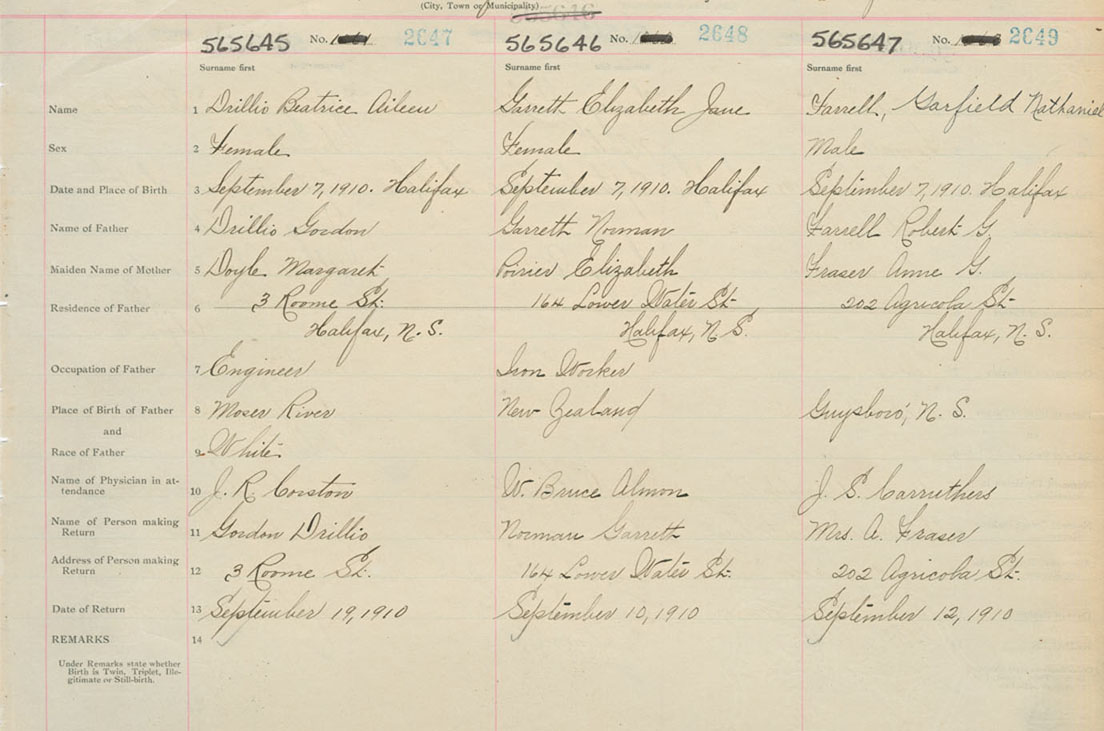 (City, Town or Municipality)
565645 No. 2647 565646 No. 2648 565647 No. 2649
Surname first Surname first Surname first
Name 1 Drillio Beatrice Aileen Garrett Elizabeth Jane Farrell, Garfield Nathaniel
Sex 2 Female Female Male
Date and Place of Birth 3 September 7, 1910. Halifax September 7, 1910. Halifax September 7, 1910. Halifax
Name of Father 4 Drillio Gordon Garreth Norman Farrell Robert G.
Maiden Name of Mother 5 Doyle Margaret Poirier Elizabeth Fraser Anne G.
Residence of Father 6 3 Roome St. 164 Lower Water St. 202 Agricola St.
Halifax, N.S. Halifax, N.S. Halifax, N.S.
Occupation of Father 7 Engineer Iron Worker
Place of Birth of Father 8 Moser River New Zealand Guysboro, N.S.
and
Race of Father 9 White
Name of Physician in at-
tendance 10 J. R. Corston W. Bruce Almon J. S. Carruthers
Name of Person making
Return 11 Gordon Drillio Norman Garrett Mrs. A. Fraser
Address of Person making
Return 12 3 Roome St. 164 Lower Water St. 202 Agricola St.
Date of Return 13 September 19, 1910 September 10, 1910 September 12, 1910
REMARKS 14
Under Remarks state whether
Birth is Twin, Triplet, Ille-
gitimate or Still-birth.